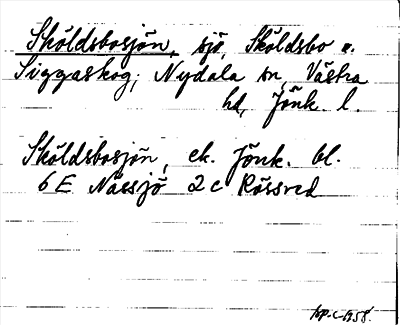 Sköldsbosjön, sjö, Sköldsbo o.
Siggaskog; Nydala sn, Västra
hd, Jönk. l.
Sköldsbosjön, ek. Jönk. bl.
6 E Nässjö 2 c Rössved